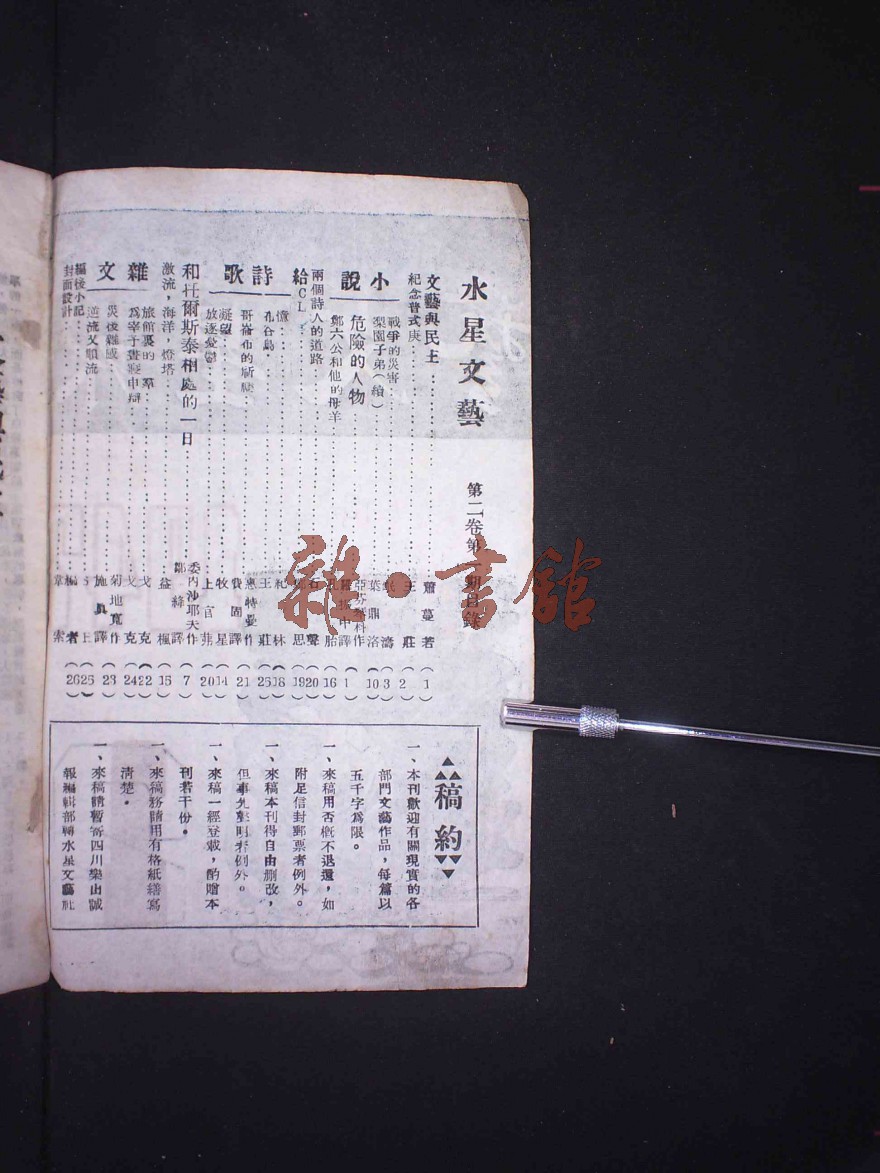 水星文藝
第二卷第
目錄
文藝與民主 蕭蔓若 (1)
紀念普式庚 王莊 (2)
小說
戰爭的災害 濤 (3)
梨園子弟(續) 葉鼎洛 (10)
危險的人物 作 譯 (1)
鄭六公和他的母羊 胎 (16)
兩個詩人的道路 石聲 (20)
給CL 思 (19)
詩歌
憶 祀林 (18)
孔谷島 王莊 (25)
哥倫布的祈禱 惠特曼作 費固譯 (21)
凝望 牧星 (14)
放逐憂鬱 上官菲 (20)
和托爾斯泰相處的一日 委內沙耶夫作 鄒絳譯 (7)
激流,海洋,燈塔 益楓 (15)
雜文
旅館裏的羣 戈克 (22)
為宰予晝寢申辯 戈克 (24)
災後雜感 菊地寬作 施真譯 (23)
逆流又順流 (25)
編後小記 編者 (26)
封面設計 章索
稿約
一、本刊歡迎有關現實的各
部門文藝作品,每篇以
五千字爲限。
一、來稿用否概不退還,如
附足信封郵票者例外。
一、來稿本刊得自由刪改,
但事先聲明者例外。
一、來稿一經登載,酌贈本
刊若干份。
一、來稿務請用有格紙繕寫
清楚。
一、來稿請暫寄四川樂山誠
報編輯部轉水星文藝社
雜·書館